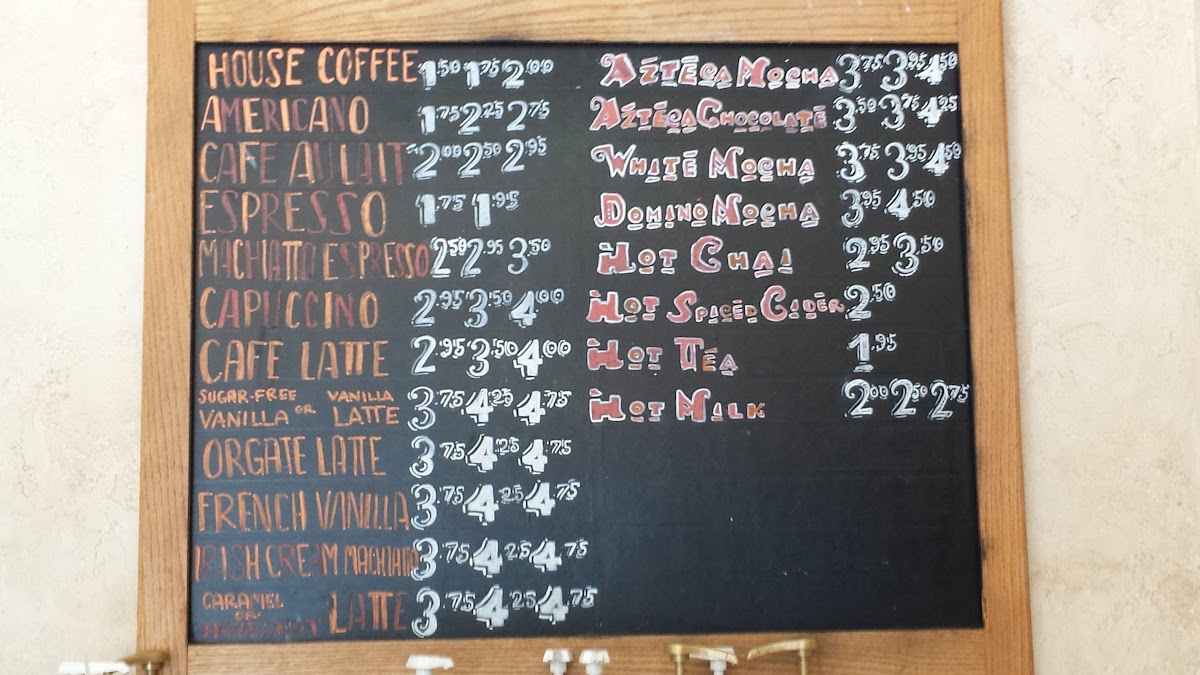 HOUSE COFFEE 1.50 1.75 2.00
AMERICANO 1.75 2.25 2.75
CAFE AU LAIT 2.00 2.50 2.95
ESPRESSO 1.75 1.95
MACHIATTO ESPRESSO 2.50 2.95 3.50
CAPUCCINO 2.95 3.50 4.00
CAFE LATTE 2.95 3.50 4.00
SUGAR-FREE VANILLA
VANILLA OR LATTE 3.75 4.25 4.75
ORGATE LATTE 3.75 4.25 4.75
FRENCH VANILLA 3.75 4.25 4.75
IRISH CREAM MACHIATTO 3.75 4.25 4.75
CARAMEL
OR
HAZELNUT LATTE 3.75 4.25 4.75
AZTECA MOCHA 3.75 3.95 4.50
AZTECA CHOCOLATE 3.50 3.75 4.25
WHITE MOCHA 3.75 3.95 4.50
DOMINO MOCHA 3.95 4.50
HOT CHAI 2.95 3.50
HOT SPICED CIDER 2.50
HOT TEA 1.95
HOT MILK 2.00 2.50 2.75